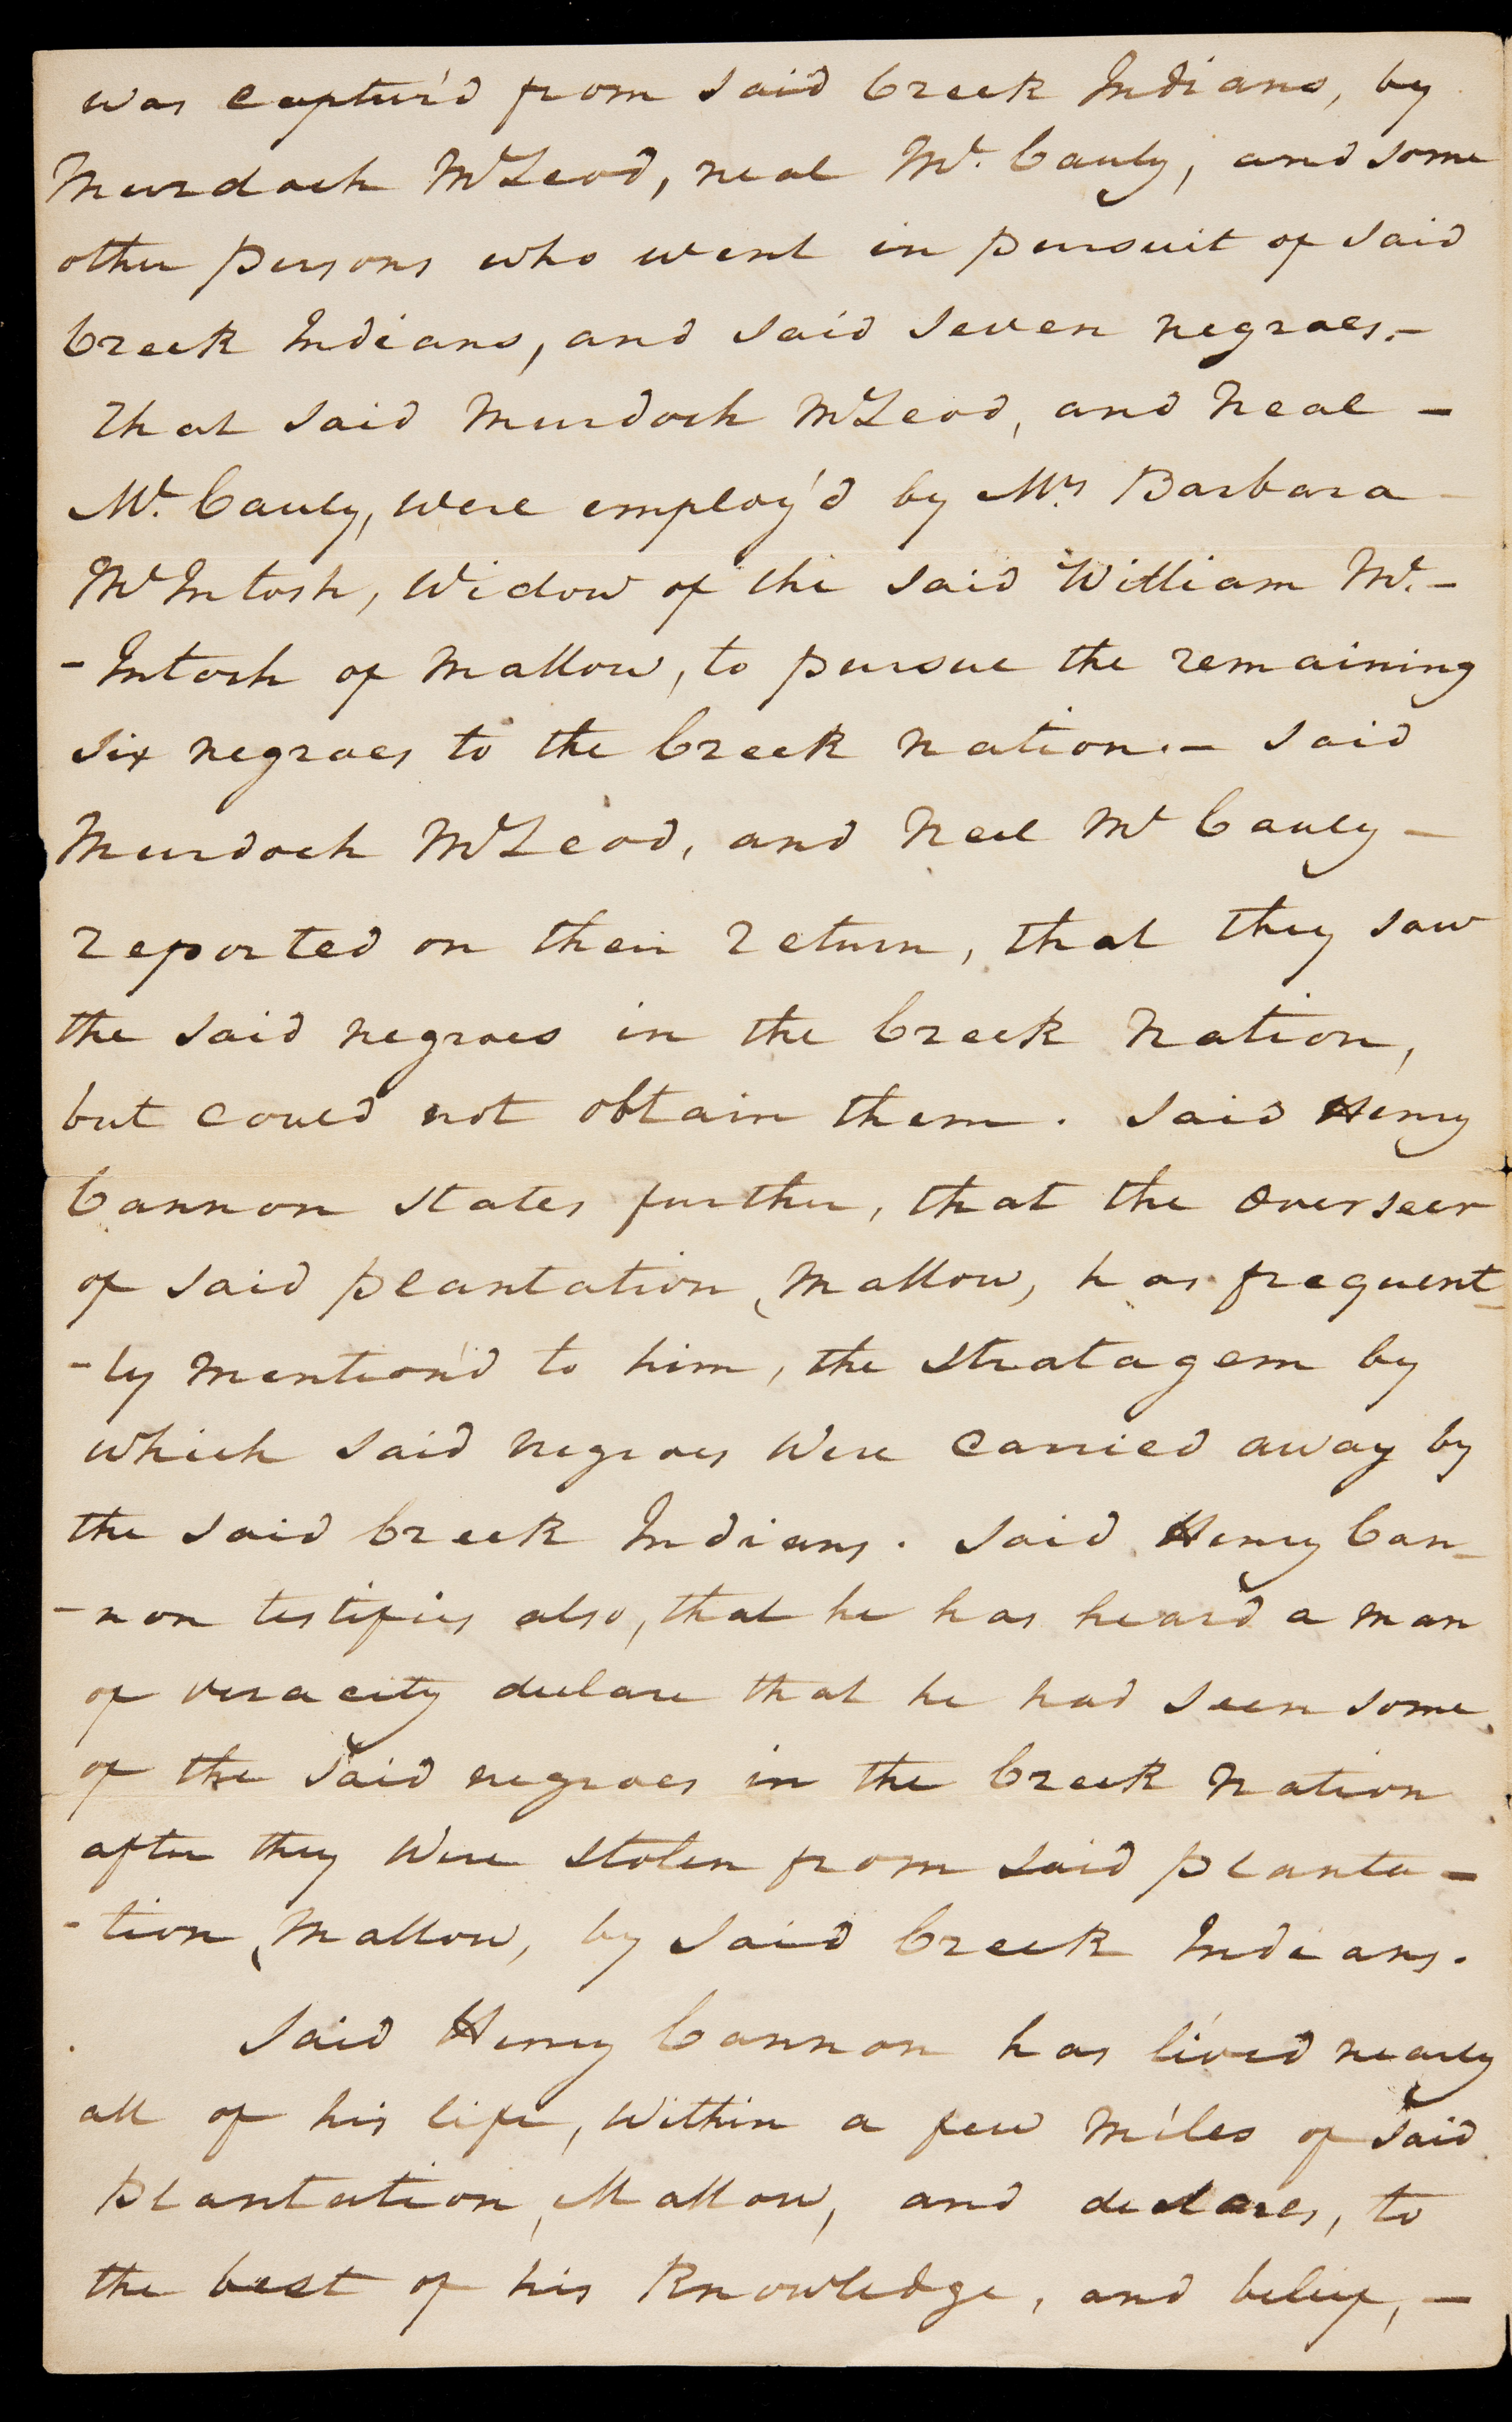 was captur'd from said Creek Indians, by
Murdoch McLeod, neal Mc. Cauly, and some
other persons who went in pursuit of said
Creek Indians, and said seven negroes.-
That said Murdoch McLeod, and Neal -
Mc. Cauly, were employ'd by Mrs Barbara
McIntosh, Widow of the said William Mc.-
-Intosh of Mallow, to pursue the remaining
six negroes to the Creek nation.- Said
Murdoch McLeod, and Neil Mc Cauly -
reported on their return, that they saw
the said negroes in the Creek Nation,
but could not obtain them. Said Henry
Cannon states further, that the Overseer
of said plantation, Mallow, has frequent-
-ly mention'd to him, the stratagem by
which said negroes were carried away by
the said Creek Indians. Said Henry Can-
-non testifies also, that he has heard a man
of veracity declare that he had seen some
of the said negroes in the Creek Nation
after they were stolen from said planta-
-tion, Mallow, by said Creek Indians.
Said Henry Cannon has lived nearly
all of his life, within a few miles of said
plantation, Mallow, and declares, to
the best of his knowledge, and belief, -